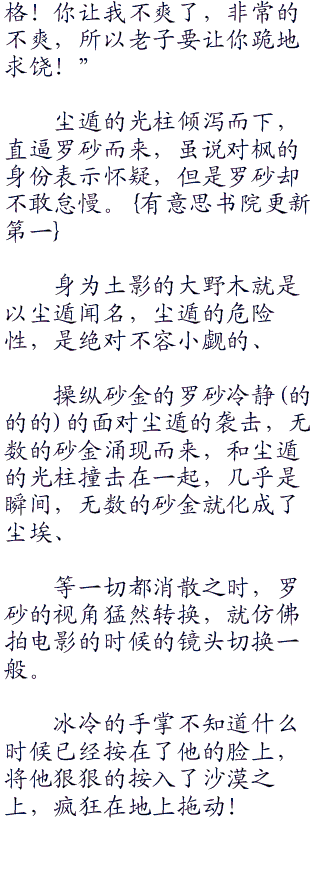 格！你让我不爽了，非常的
不爽，所以老子要让你跪地
求饶！”
尘遁的光柱倾泻而下，
直逼罗砂而来，虽说对枫的
身份表示怀疑，但是罗砂却
不敢怠慢。{有意思书院更新
第一}
身为土影的大野木就是
以尘遁闻名，尘遁的危险
性，是绝对不容小觑的、
操纵砂金的罗砂冷静(的
的的)的面对尘遁的袭击，无
数的砂金涌现而来，和尘遁
的光柱撞击在一起，几乎是
瞬间，无数的砂金就化成了
尘埃、
等一切都消散之时，罗
砂的视角猛然转换，就仿佛
拍电影的时候的镜头切换一
般。
冰冷的手掌不知道什么
时候已经按在了他的脸上，
将他狠狠的按入了沙漠之
上，疯狂在地上拖动！